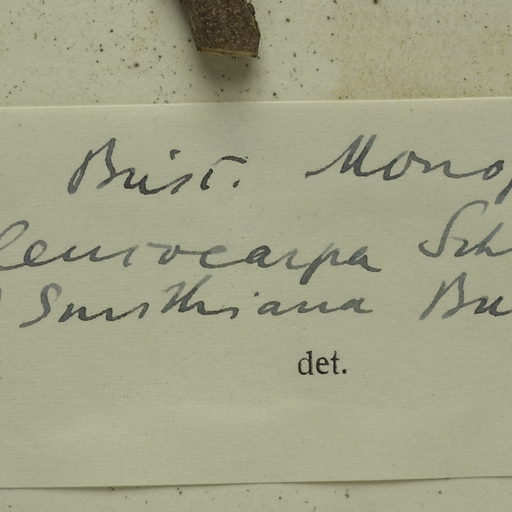 Brist. Monog
leucocarpa Sch
Smithiana Bu
det.